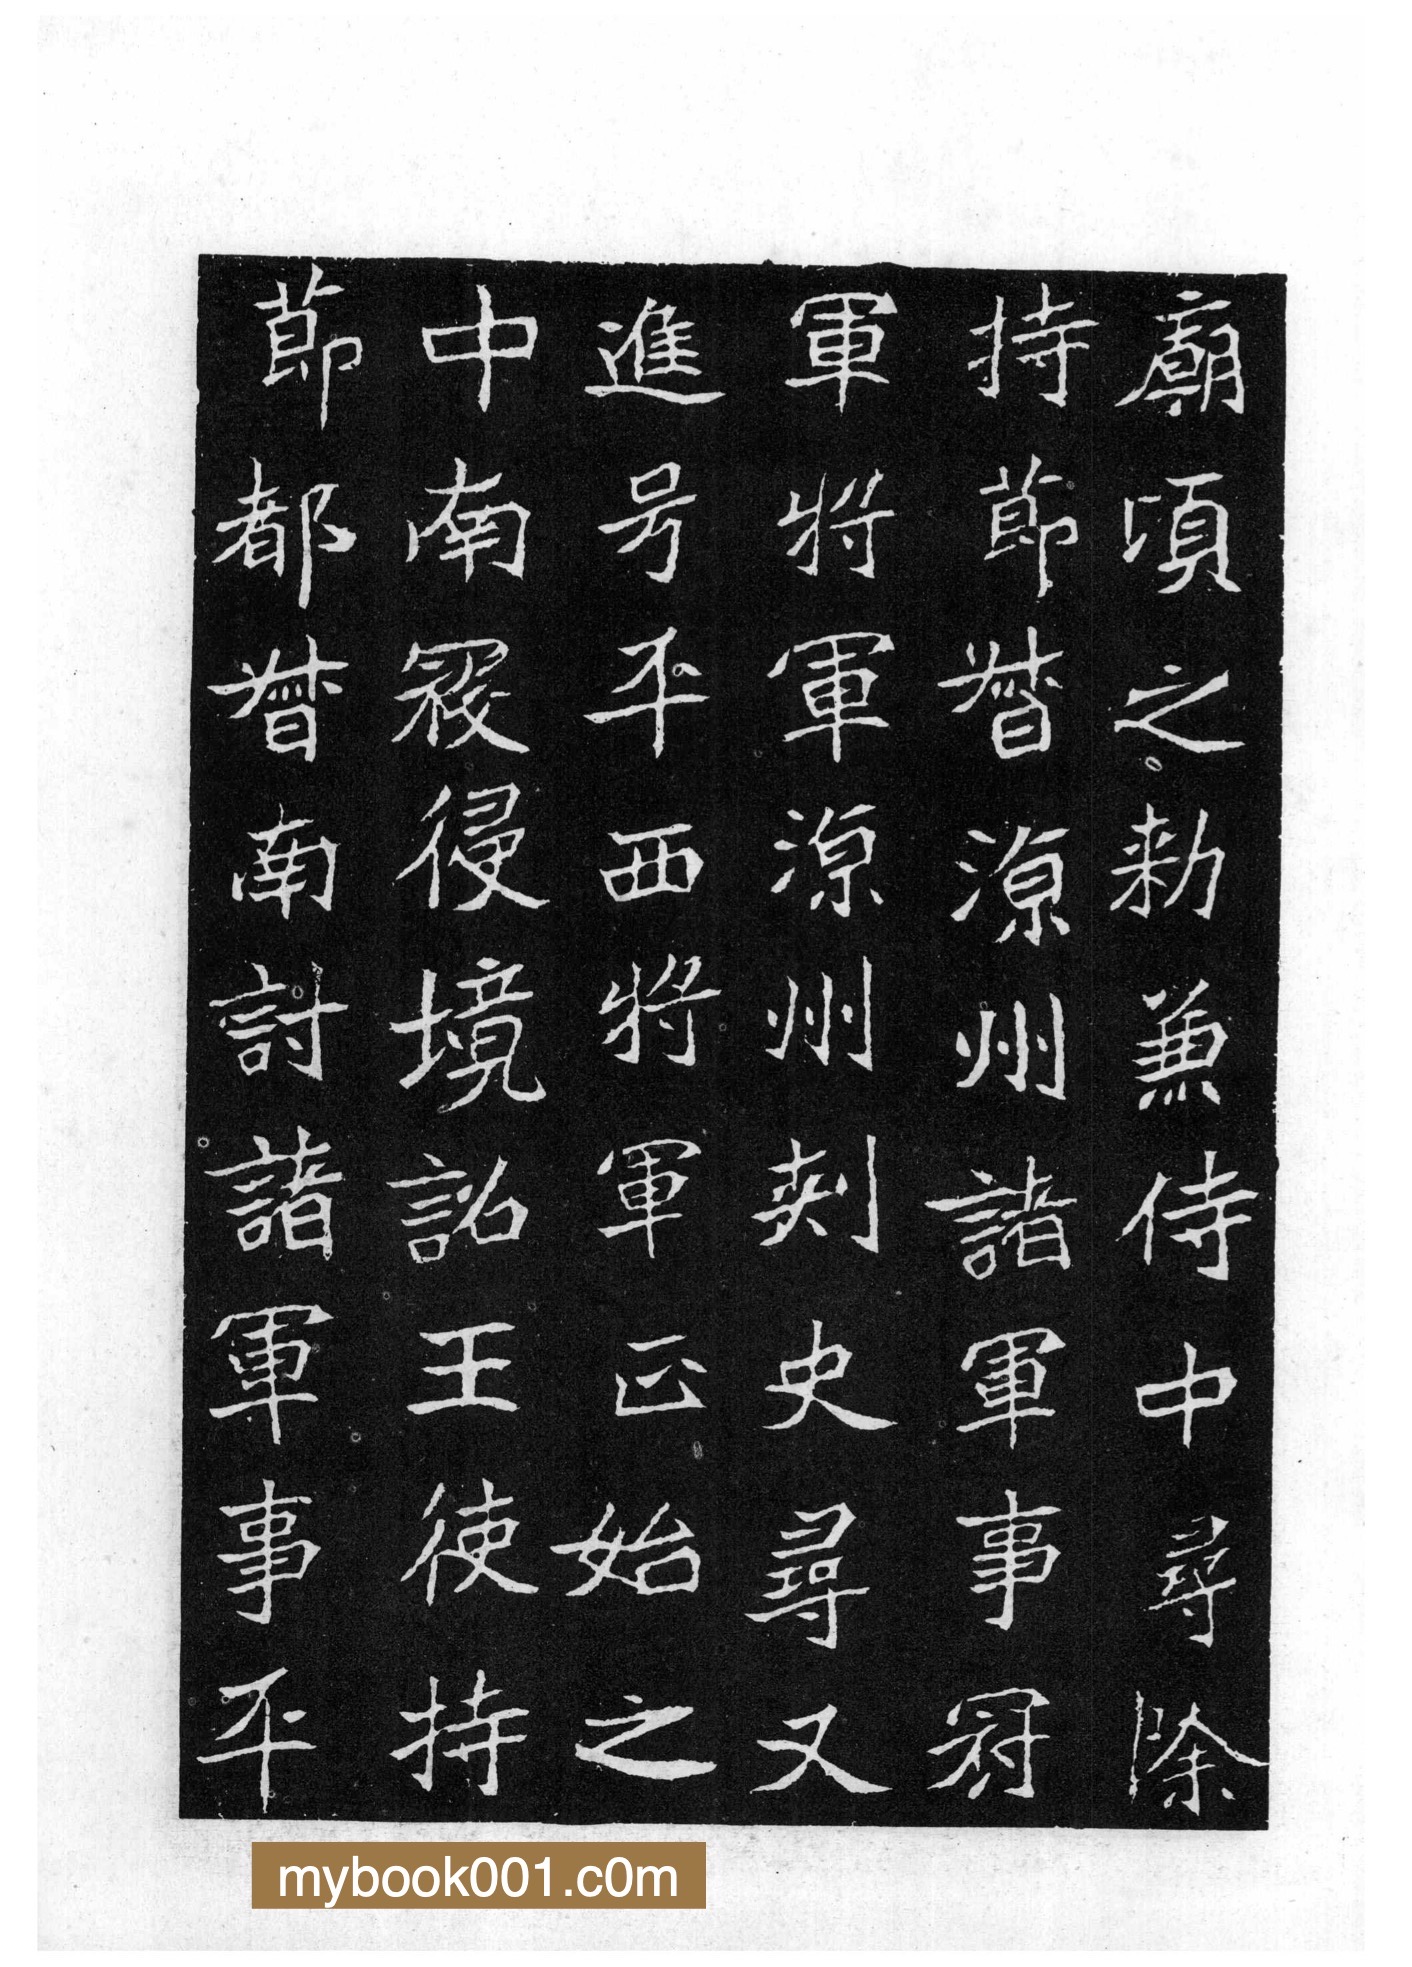 廟頃之勑兼侍中尋除
持節督涼州諸軍事冠
軍將軍涼州刺史尋又
進号平西將軍正始之
中南寇侵境詔王使持
節都督南討諸軍事平
mybook001.c0m